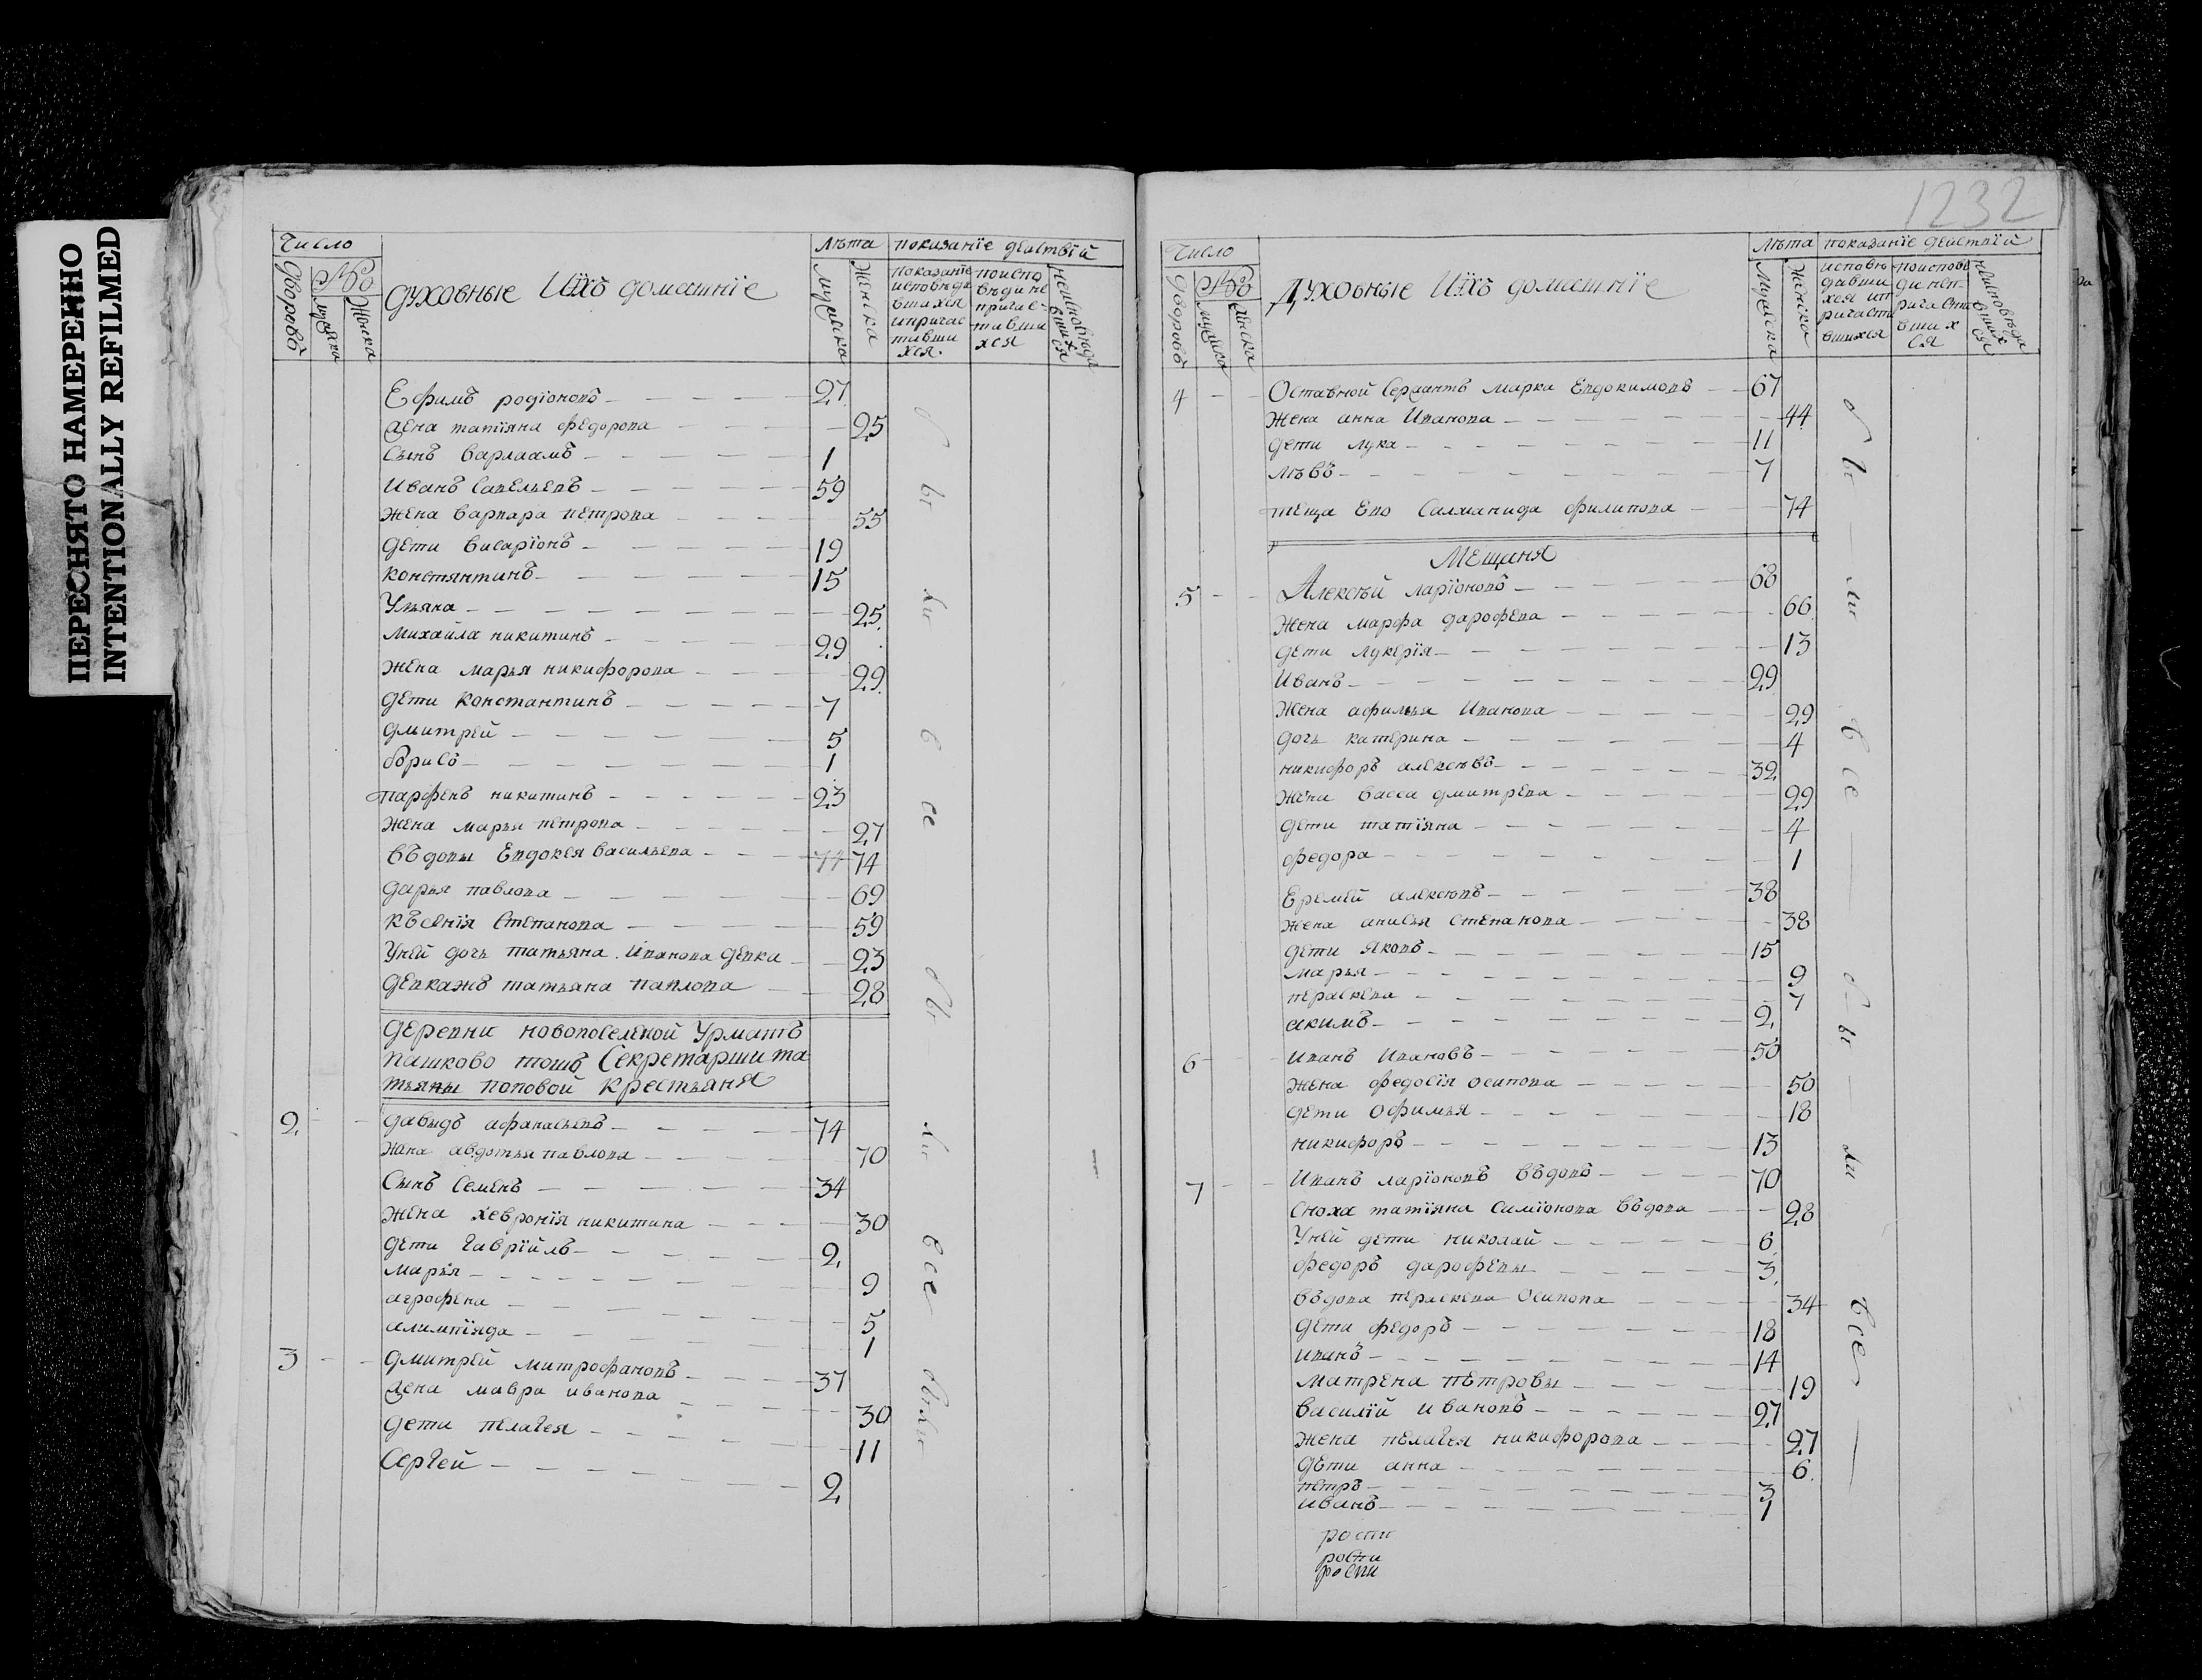 ПЕРЕСНЯТО НАМЕРЕННО
INTENTIONALLY REFILMED
Число
Дворовъ
Мужска
Женска
духовные Ихъ домашнїе
Лѣта
Мужска
Женска
показанїе действїй
показанїе
исповѣда
вшихся
ипричас
тивши
хся.
поиспо
вѣди не
причас-
тивши
хся
неисповѣда
вшихся
Ефимъ родїоновъ 27
жена татїяна федорова 25
Сынъ варлаамъ 1
Иванъ Савельевъ 59
жена варвара петрова 55
дети висарїонъ 19
константинъ 15
Ульяна 25
Михайла никитинъ 29
жена марья никифорова 29
дети константинъ 7
дмитрей 5
борисъ 1
парфенъ никитинъ 23
жена марья петрова 27
въдовы Евдокея васильева 74 74
дарья павлова 69
къеенїя Степанова 59
Уней дочь татьяна Иванова девка 23
девкажъ татьяна павлова 28
деревни новопоселеной Урматъ
пашково тошъ Секретарши та
тьяны поповой крестьяня
2 давыдъ афанасьевъ 74
жена авдотья павлова 70
Сынъ Семенъ 34
жена хевронїя никитина 30
дети гаврїилъ 2
марья 9
агрофена 5
алимпїяда 1
3 дмитрей митрофановъ 37
жена мавра иванова 30
дети пелагея 11
Сергей 2
1232
Число
Дворовъ
Мужска
Женска
Духовные Ихъ домашнїе
Лѣта
Мужска
Женска
показанїе действїй
исповѣ
давши
хся ип
ричасти
вшихся
поисповѣ
ди неп-
ричасти
вших
ся
неисповѣда
вших
ся
4 Оставной Сержантъ марка Евдокимовъ 67
Жена анна Иванова 44
дети лука 11
лѣвъ 7
теща Ево Саламанида филипова 74
Мещаня
5 Алексѣй ларїоновъ 68
Жена марфа дарофева 66
дети лукерїя 13
Иванъ 29
Жена афимья Иванова 29
дочь катерина 4
никифоръ алексѣвъ 32
Жена васса дмитрева 29
дети татїяна 4
федора 1
Еремей алексѣвъ 38
жена анисья степанова 38
дети яковъ 15
марья 9
праскева 7
акимъ 2
6 Иванъ Ивановъ 50
жена федосїя осипова 50
дети Офимья 18
никифоръ 13
7 Иванъ ларїоновъ въдовъ 70
сноха татїяна Симїонова въдова 28
Уней дети николай 6
федоръ дарофевы 3
въдова праскева Осипова 34
дети федоръ 18
иванъ 14
матрена петровы 19
василїй ивановъ 27
жена пелагея никифорова 27
дети анна 6
петръ 3
иванъ 1
роспи
роспи
роспи